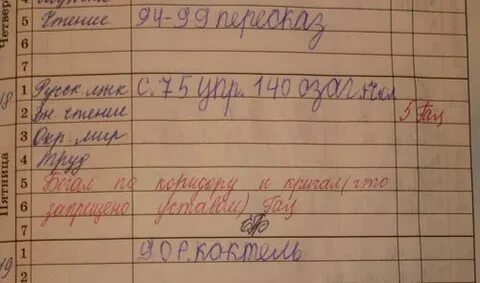 Четверг
5 Чтение 94-99 пересказ
6
7
18
1 Русск. язык с. 75 упр. 140 озаг.
2 Вн. чтение 5 Гац
3 Окр. мир
Пятница
4 Труд
5 Бегал по коридору и кричал (что
6 запрещено уставом) Гац
7
19
1 90 р. коктель
2